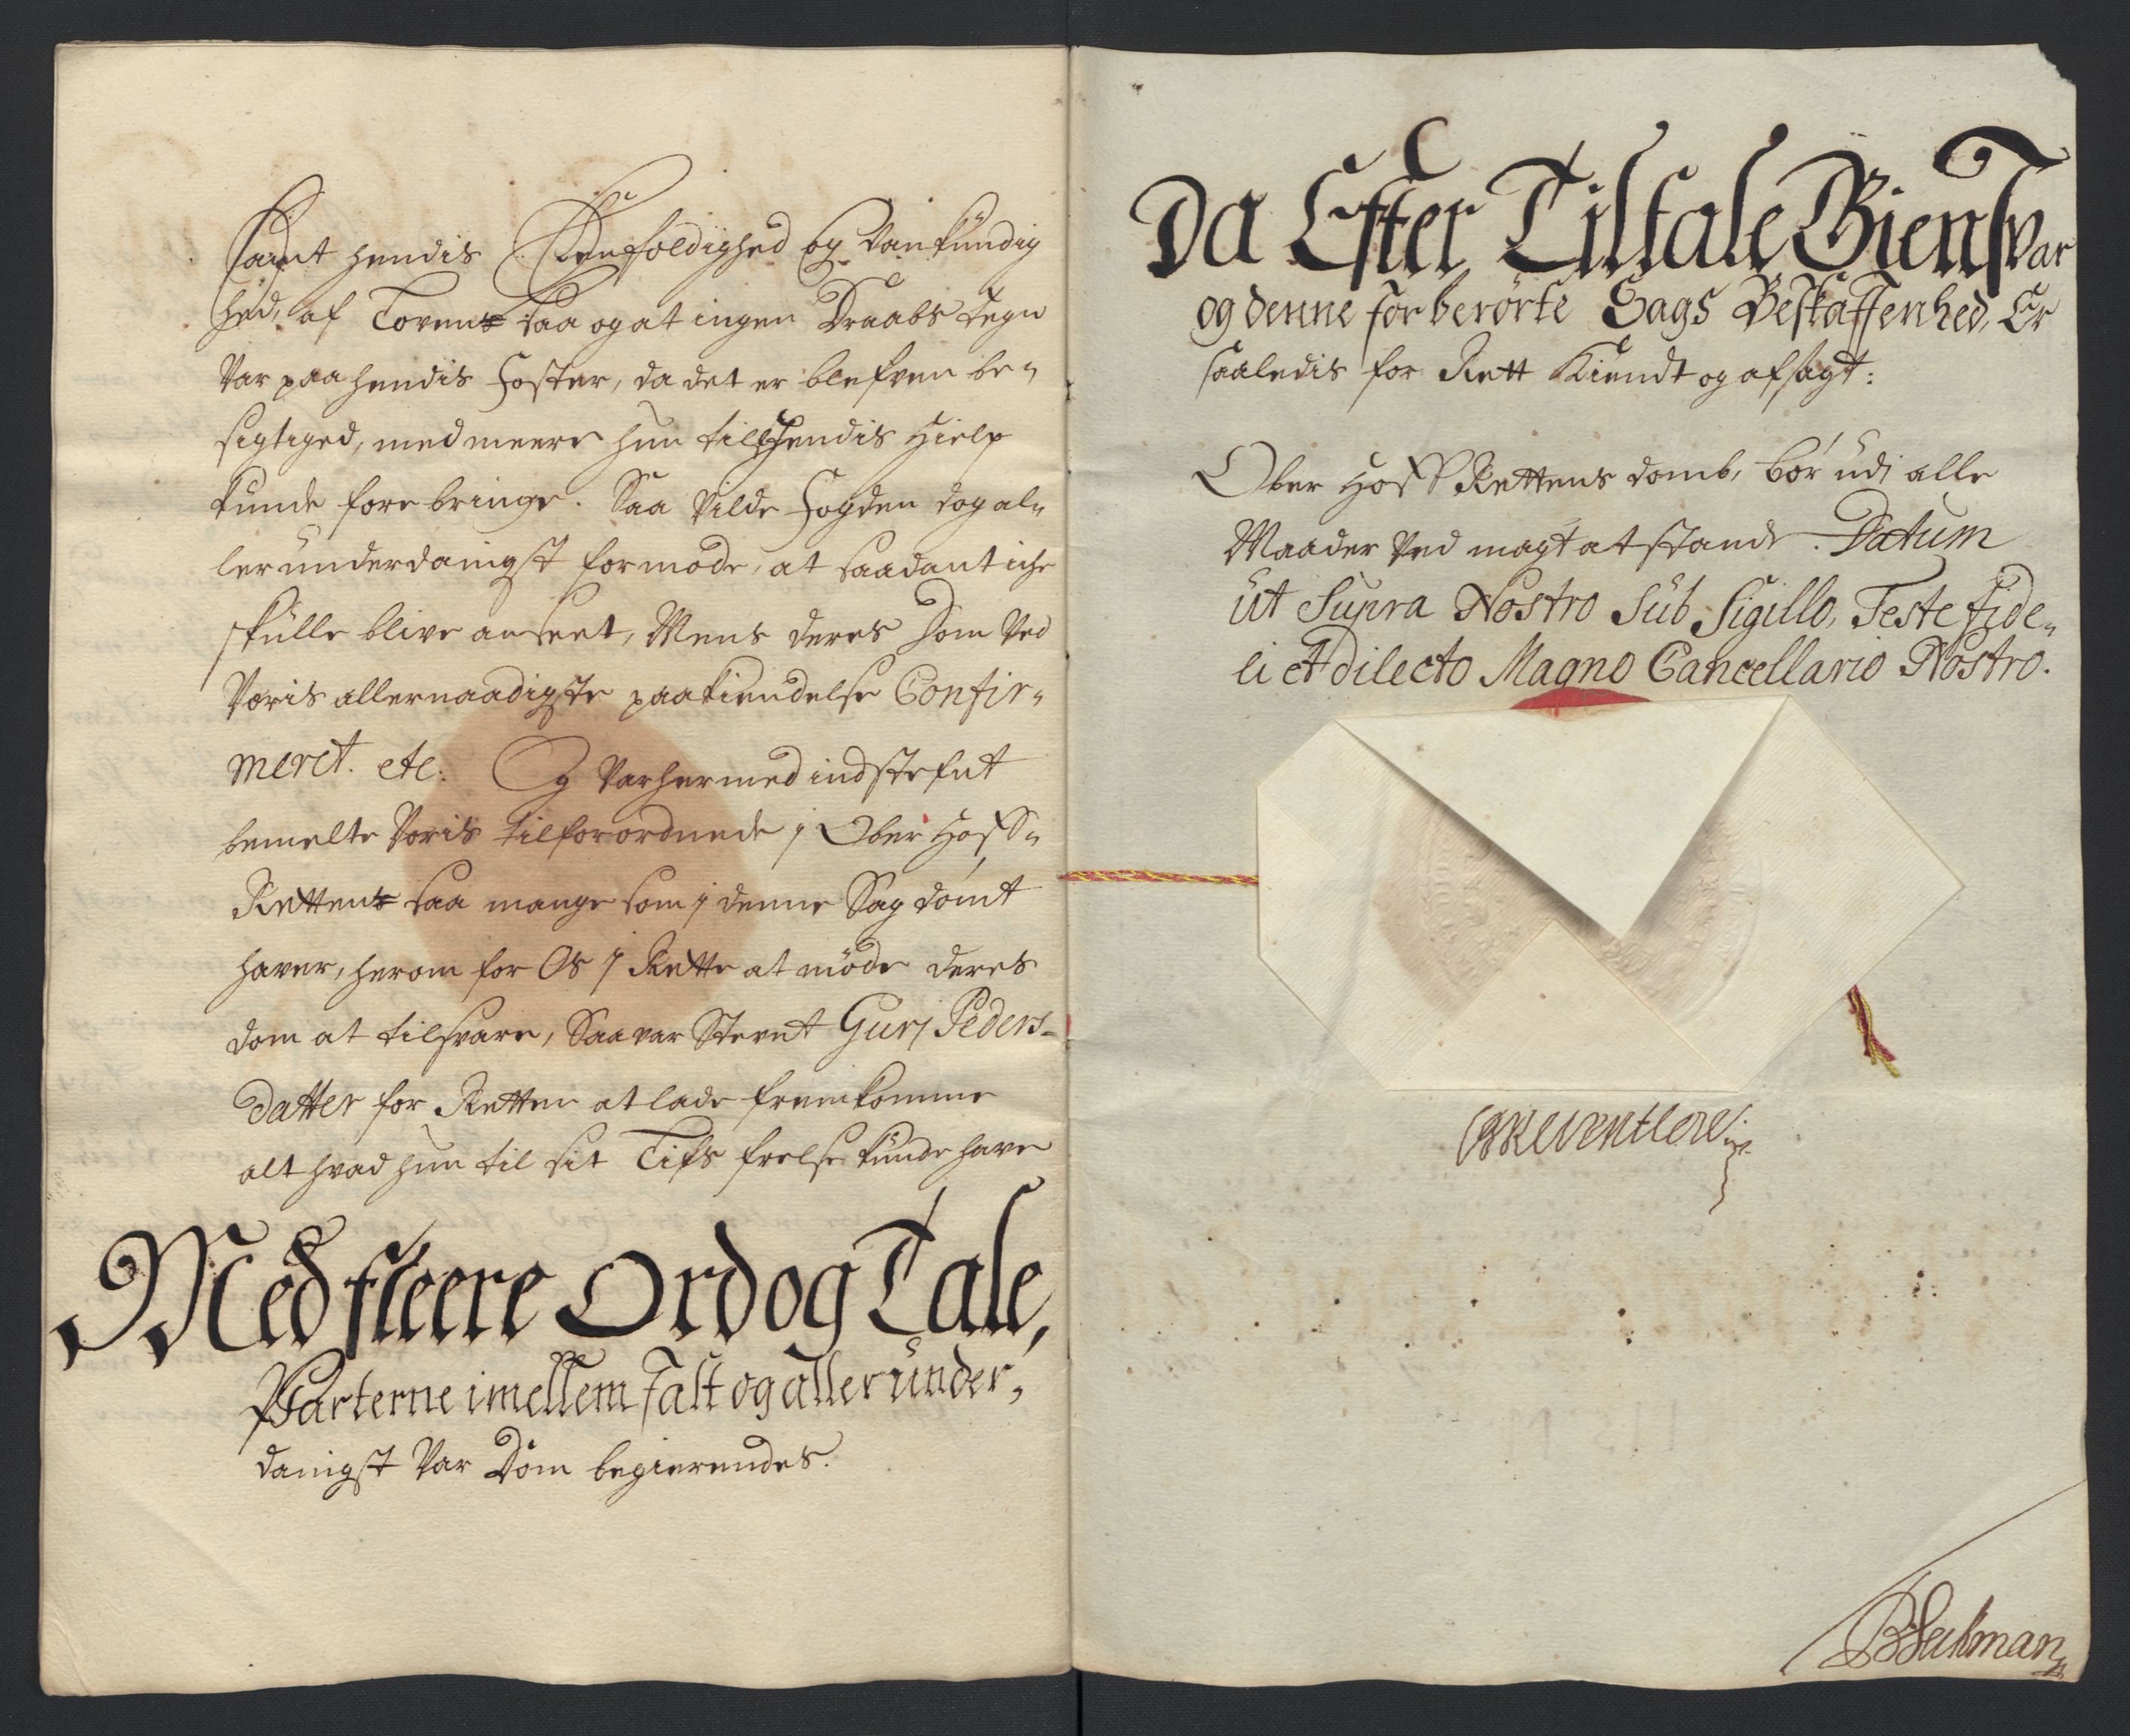 samt hendis Eenfoldighed og Vankündig
hed, af Loven, saa og at ingen Draabs tegn
Var paa hendis Foster, da det er blefven be„
sigtiged, med meere hun till hendis Hielp
kunde fore bringe. Saa Vilde Fogden dog al„
lerunderdanigst formode, at saadant iche
skulle blive anseet, Mens deres Dom Ved
Voris allernaadigste paakiendelse Confir„
meret. etc. Og Var hermed indstefnt
bemelte Voris tilforordnede i Ober Hoff„
Retten, saa mange som i denne Sag dömt
haver, herom for Os i Rette at möde deres
dom at tilsvare, Saa var Stevnt Gurj Peders-
datter for Retten at lade fremkomme
alt hvad hun til sit Lifs frelse kunde have
Med fleere Ord og Tale,
Parterne imellem falt og alleründer„
danigst Var Dom begierendes.
Da Efter Tiltale Giensvar
og denne forberörte Sags Beskaffenhed, Er
saaledis for Rett Kiendt og afsagt:
Ober Hoff Rettens domb, bör üdj alle
Maader Ved magt at stande. Datum
Ut Supra Nostro Süb Sigillo, Teste fide„
li et dilecto Magno Cancellario Nostro.
CReventlow